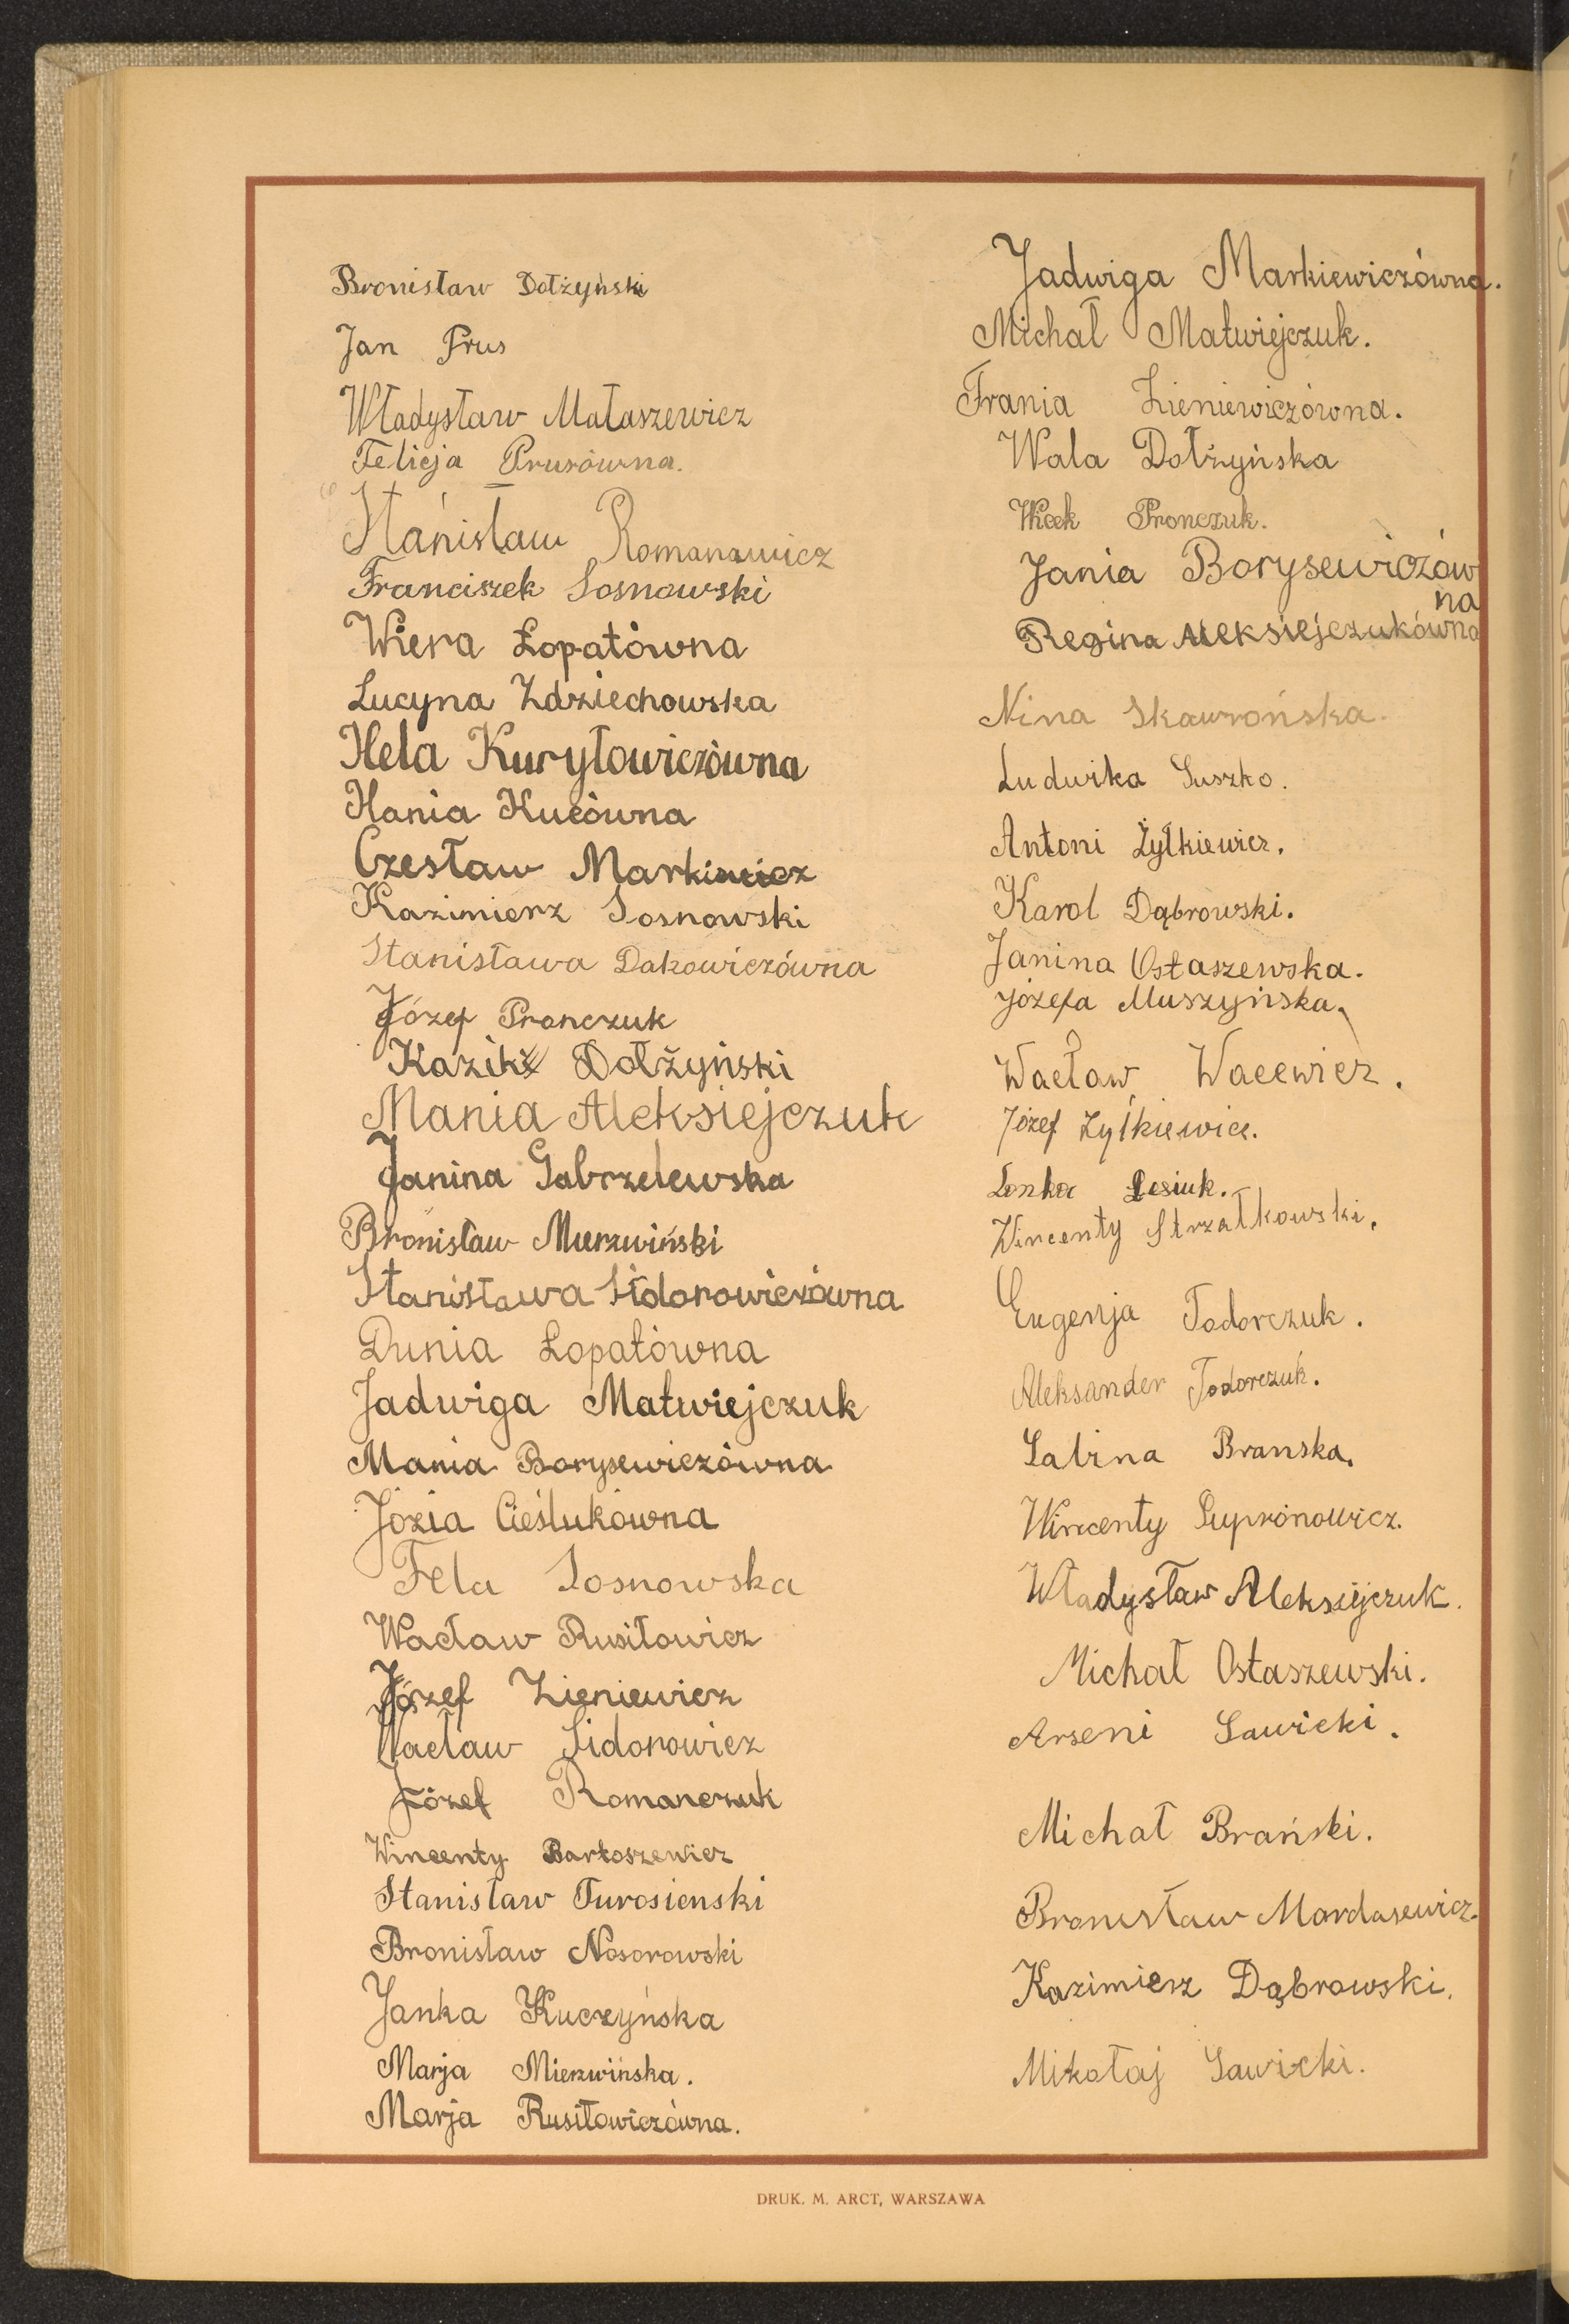 Bronisław Dołżyński
Jan Prus
Władysław Mataszewicz
Felicja Prusówna.
Stanisław Romanowicz
Franciszek Sosnowski
Wiera Łopatówna
Lucyna Zdziechowska
Hela Kuryłowiczówna
Hania Kucówna
Czesław Markiewicz
Kazimierz Sosnowski
Stanisława Dakowiczówna
Józef Pronczuk
Kazik Dołżyński
Mania Aleksiejczuk
Janina Gabrzelewska
Bronisław Mierzwiński
Stanisława Sidorowiczówna
Dunia Łopatówna
Jadwiga Matwiejczuk
Mania Borysewiczówna
Józia Cieślukówna
Fela Sosnowska
Wacław Rusiłowicz
Józef Zieniewicz
Wacław Sidorowicz
Józef Romanczuk
Wincenty Bartoszewicz
Stanisław Turosienski
Bronisław Nosorowski
Janka Kuczyńska
Marja Mierzwińska.
Marja Rusiłowiczówna.
Jadwiga Markiewiczówna.
Michał Matwiejczuk.
Frania Zieniewiczówna.
Wala Dołżyńska
Wicek Pronczuk.
Jania Borysewiczów
na
Regina Aleksiejczukówna
Nina Skawrońska.
Ludwika Suszko.
Antoni Żyłkiewicz.
Karol Dąbrowski.
Janina Ostaszewska.
Józefa Muszyńska.
Wacław Wacewicz.
Józef Żyłkiewicz.
Lonka Lesiuk.
Wincenty Strzałkowski.
Eugenja Todorczuk.
Aleksander Todorczuk.
Sabina Branska.
Wincenty Supronowicz.
Władysław Aleksiejczuk.
Michał Ostaszewski.
Arseni Sawicki.
Michał Brański.
Bronisław Mardasewicz.
Kazimierz Dąbrowski.
Mikołaj Sawicki.
DRUK. M. ARCT, WARSZAWA